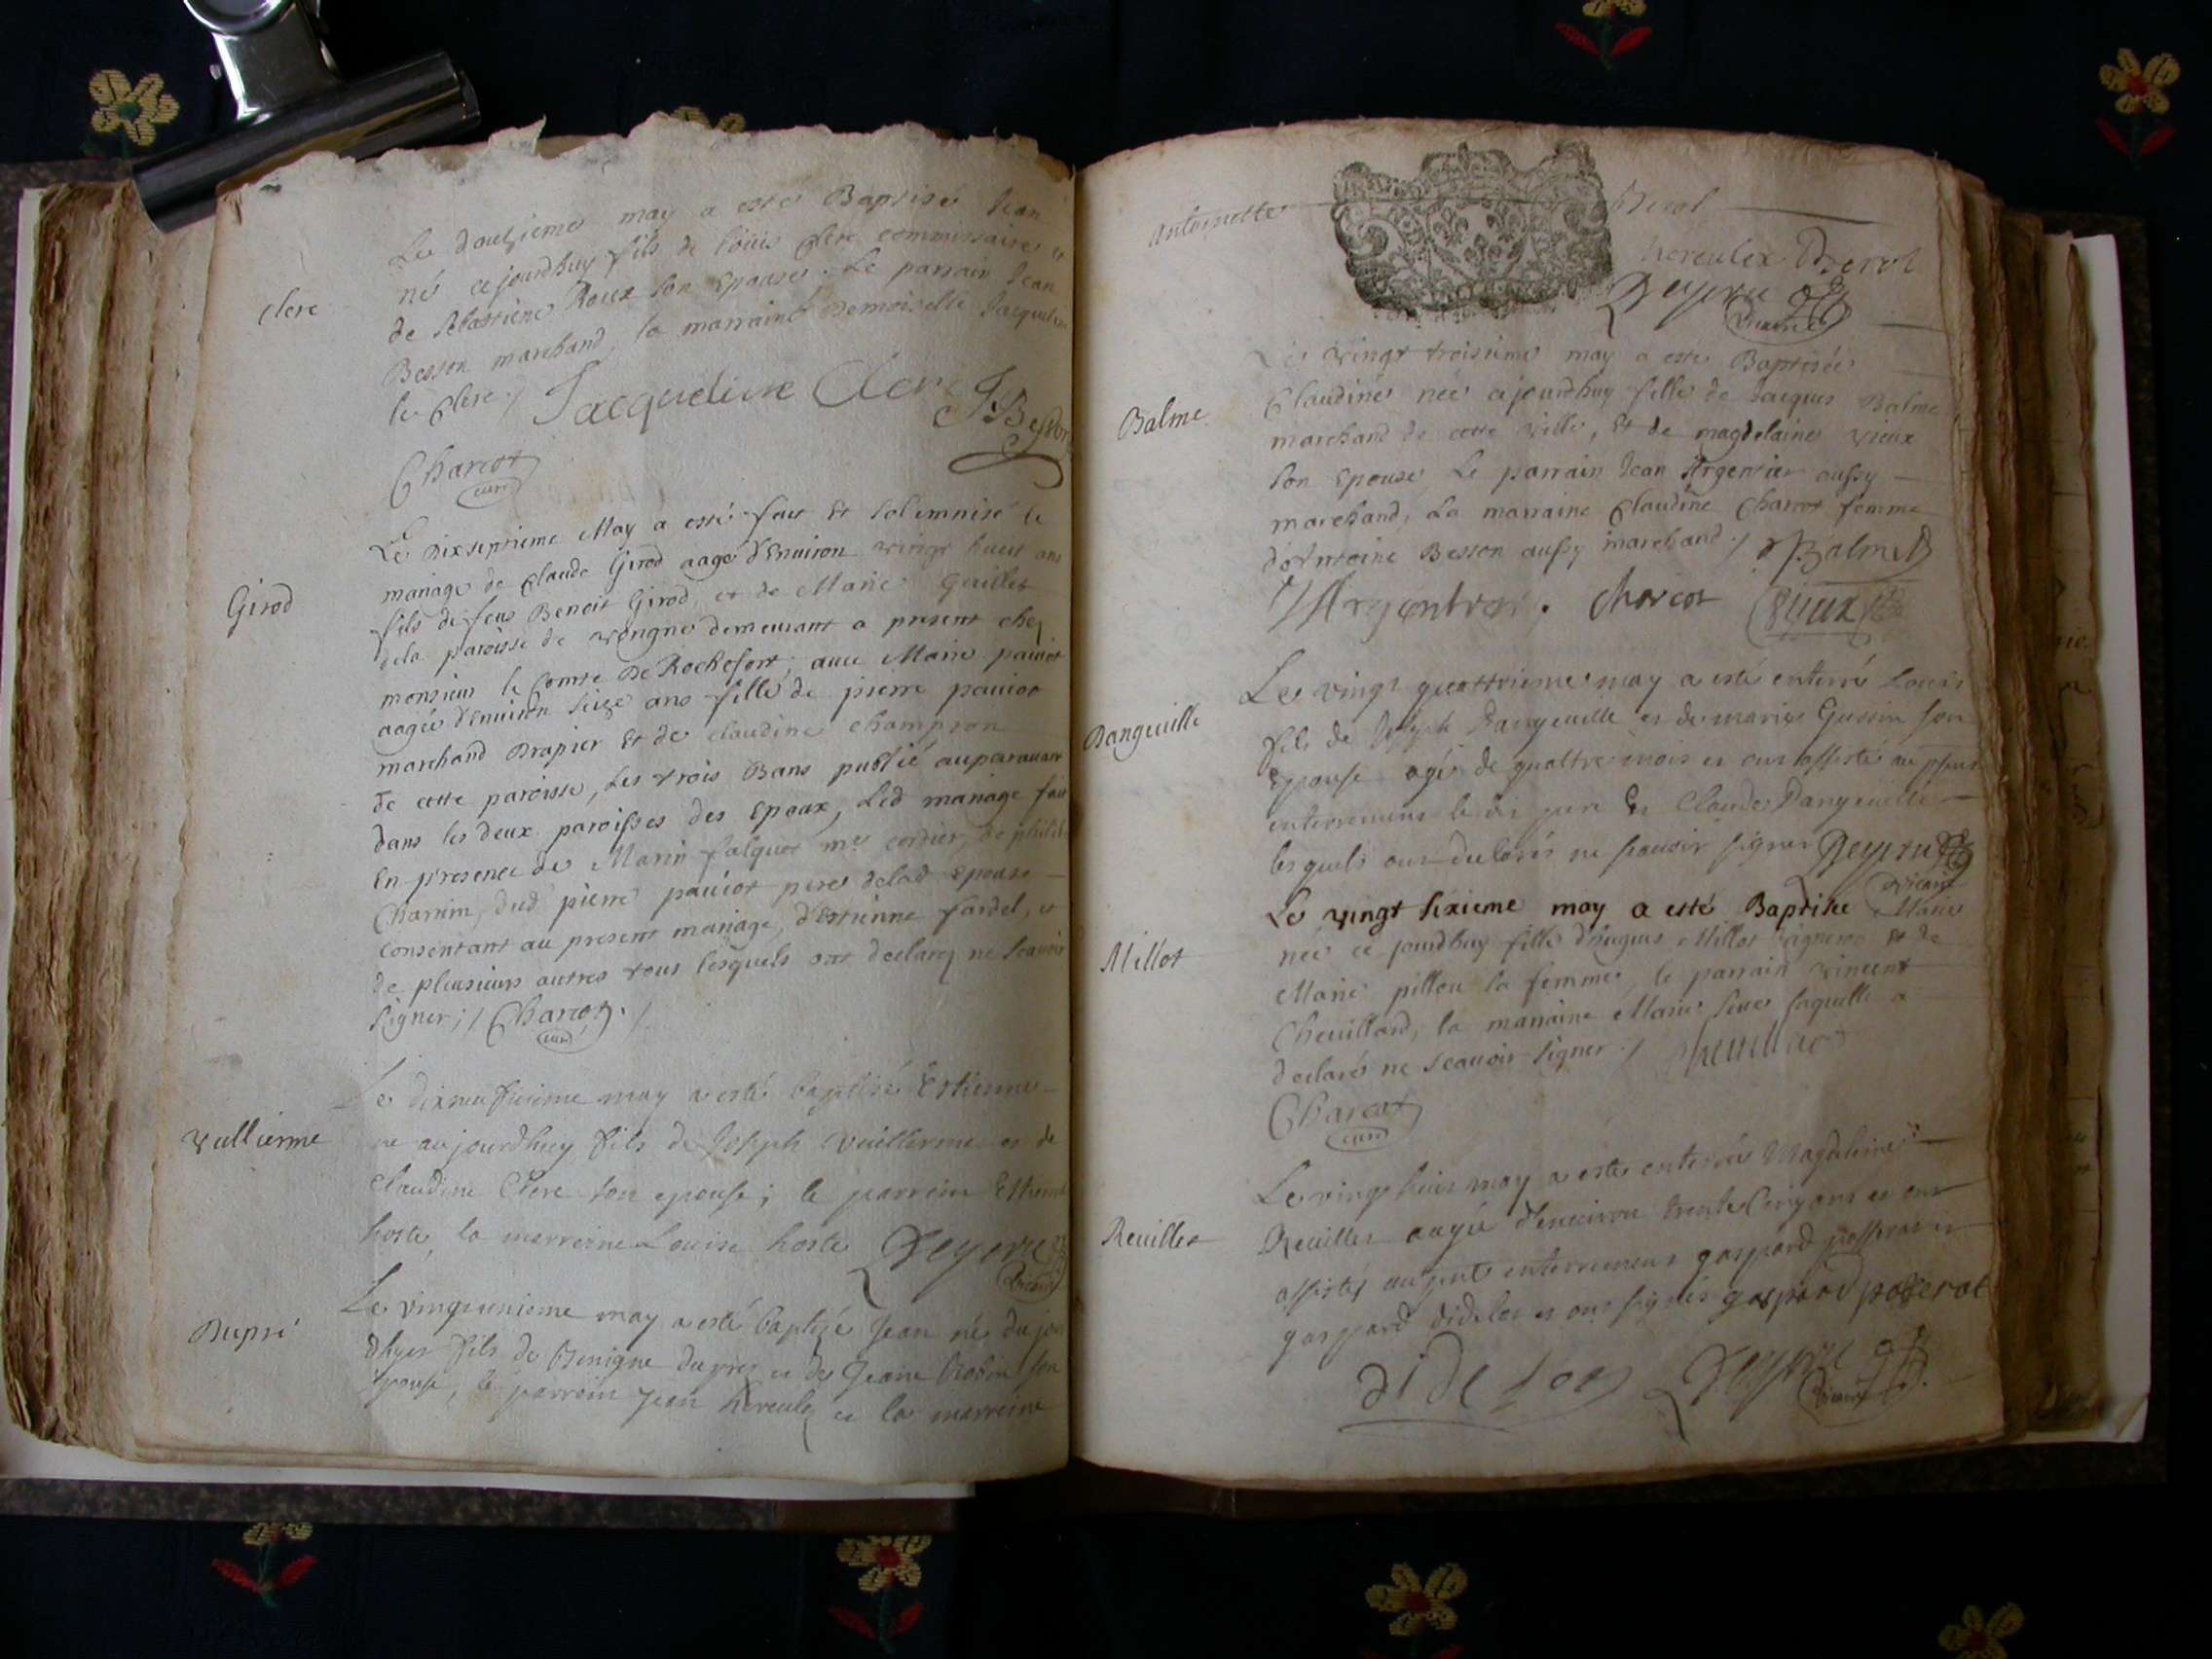 Le douzieme may a esté Baptisé Jean
né cejourdhuy fils de loüis Clerc commissaire et
Clerc
de Sebastiene Roux son Epouse. Le parrain Jean
Besson marchand, la marraine Demoiselle Jacqueline
le Clerc./. Jacqueline Clerc J: Besson
Charcot
curé
Le Dixseptieme May a esté fait Et solemnisé le
Girod
mariage de Claude Girod aagé d'Environ vingt huit ans
fils de feu Benoit Girod, et de Marie Guillet
dela paroisse de vongne demeurant a present chez
monsieur le Comte De Rochefort, avec Marie paviot
aagée d'Environ seize ans fille de pierre paviot
marchand Drapier Et de claudine Champion
de cette paroisse, Les trois Bans publié auparauant
dans les deux paroisses des Epoux, Led mariage fait
En presence de Marin falquet me cordier, de philib
Charrim, dud pierre pauiot pere delad Epouse
consentant au present mariage, d'Estienne fardel, et
de plusieurs autres tous lesquels ont declarez ne sçauoir
signer;/ Charcot ./
curé
Vullierme
Le dixneufuieme may a esté baptisé Estienne
né aujourdhuy fils de Joseph Vuillerme et de
Claudine Clerc son epouse; le parrein Estienne
hoste, la marreine Louise hoste Deyrieu
vicaire
Dupré
Le vingtunieme may a esté baptizé Jean né du jour
dhyer fils de Benigne duprez et de Jeane Robin son
epouse, le parrein Jean hercule et la marreine
Antoinette Berot
herculex Berot
Vicaire
Balme
Le vingt troisieme may a esté Baptisée
Claudine neé cejourdhuy fille de Jacques Balme
marchand de cette ville, Et de magdelaine vieux
son Epouse, Le parrain Jean Argentier aussy
marchand, La marraine Claudine Charcot femme
d'Antoine Besson aussy marchand ./ J Balme
J Argentier. Charcot Vieux
Dangeuille
Le vingt quattrieme may a esté enterré Louis
fils de Joseph Dangeuille et de marie Gussin son
Epouse agé de quattre mois et ont assisté au psent
enterrement le dit pere Et Claude Dangeuille
lesquels ont declarés ne scauoir signer
vicaire
Millot
Le vingt sixieme may a esté Baptisée Marie
neé ce jourdhuy fille d'hugues Millot vigneron Et de
Marie pillou sa femme, le parrain vincent
Cheuillard, la marraine Marie laquelle a
declaré ne sçauoir signer ./ Cheuillard
Charcot
curé
Reuillet
Le vingt huit may a esté enterrée Magdeleine
Reuillet aagée d'enuiron trente cinq ans et ont
assistés au pnt enterrement gaspard passerat et
gaspard didelot et ont signés gaspard passerat
didelot
vicaire